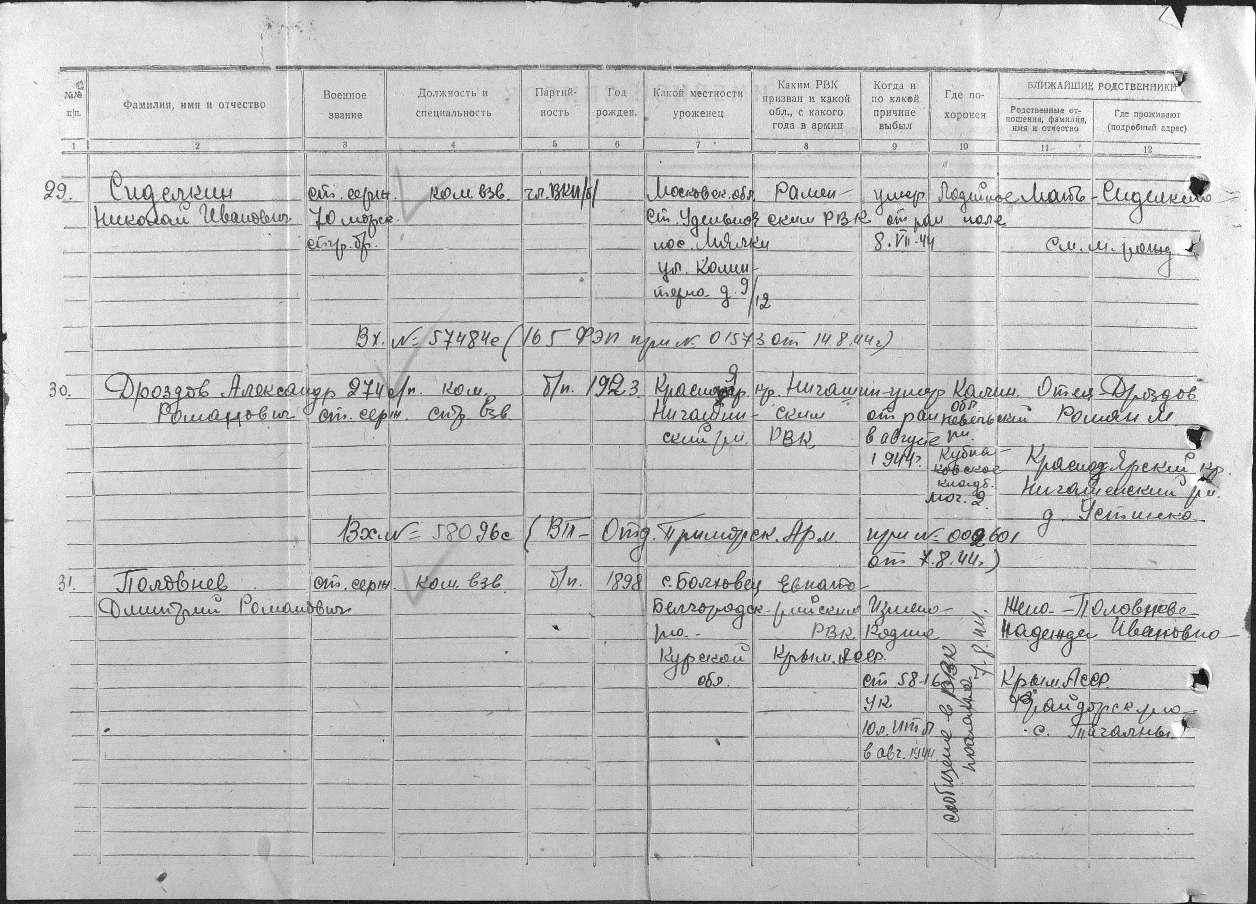 №№ п/п.
Фамилия, имя и отчество
Военное звание
Должность и специальность
Партий-ность
Год рожден.
Какой местности уроженец
Каким РВК призван и какой обл., с какого года в армии
Когда и по какой причине выбыл
Где по-хоронен
БЛИЖАЙШИЕ РОДСТВЕННИКИ
Родственные от-ношения, фамилия, имя и отчество
Где проживают (подробный адрес)
1 2 3 4 5 6 7 8 9 10 11 12
29. Сиделкин ст. серж. ком. взв. чл. ВКП/б/ Московск. обл. Рамен- умер Лодейное Мать - Сиделкина
Николай Иванович 70 морск. ст. Удельное ским РВК от ран поле
стр. бр. пос. 8.VII-44 см. м. рожд.
ул. Комин-
терна д. 9/12
Вх. № 57484с (165 ФЭП при № 01573 от 14.8.44г)
30. Дроздов Александр 274 с/п. ком. б/п. 1923 Краснояр. кр. умер Калин. Отец - Дроздов
Романович ст. серж. стр. взв. от ран обл. Невельский Роман М.
ский р-н. РВК в августе р-н.
1944г. Красноярский кр.
кладб.
мог. 29. р-н.
д. Устинка
Вх. № 58096с (ВТ - Отд. Приморск. Арм при № 002601
от 7.8.44г)
31. Половнев ст. серж. ком. взв. б/п. 1898 с. Болховец Евпато-
Дмитрий Романович Белгородск. рийским Измена Жена - Половнева
р-на - РВК Родине Надежда Ивановна
Курской Крым. АССР.
обл. ст 58-1б Крым АССР.
УК р-на
10 л. ИТЛ с.
в авг. 1944
сообщение в РВК
послано 7.8.44.